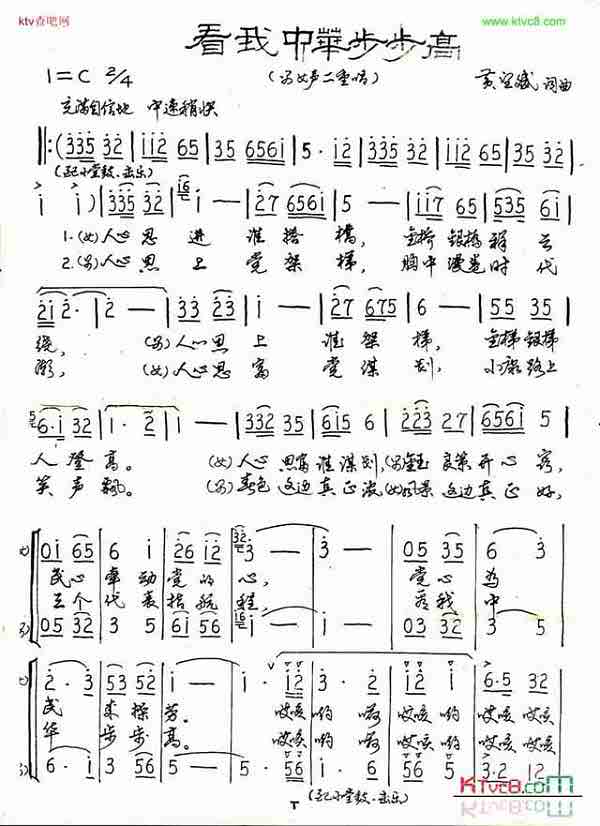 ktv查吧网
www.ktvc8.com
看我中华步步高
(男女声二重唱)
1=C 2/4
黄望斌 词曲
充满自信地 中速稍快
‖:(335 32 | i i i 2 65 | 35 6561 | 5·i2 | 335 i2 | i i i 2 65 | 35 32 |
(配小堂鼓·击乐)
i i) | 335 32 | i — | 27 6561 | 5 — | i i i 7 65 | 535 6i |
1.(女)人心思进谁搭桥, 金桥银桥
2.(男)人心思上党架梯, 胸中 时代
2i 2· | 2 — | 33 23 | i — | 27 675 | 6 — | 55 35 |
绕, (男)人心思上谁架梯, 金梯银梯
潮, (女)人心思富党谋划, 小康路上
6·i 32 | i·2 | i — | 332 35 | 6i5 6 | 223 27 | 656i 5 |
人登高。 (女)人心思富谁谋划,(男)金玉良策开心窍,
笑声飘。 (男)春色这边真正浓,(女)风景这边真正好,
0i 65 | 6 i | 26 i2 | 3 — | 3 — | 05 35 | 6 3 |
民心牵动党的心, 党心为
三个代表指航程, 看我中
03 32 | 3 5 | 6i 56 | i — | i — | 03 32 | 3 5 |
2·3 | 53 52 | i — | i — | i2 | 3·2 | i2 i | 6·5 32 |
民来操劳。 哎咳哟嗬 哎咳哟 哎咳
华步步高。 哎咳哟嗬 哎咳哟 哎咳
6·i | 3 56 | i — | i — | 56 | i·6 | 56 5 | 3·2 12 |
(配小堂鼓·击乐)
KTvc8.com